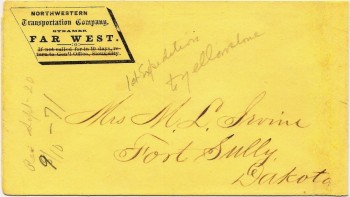 NORTHWESTERN
Transportation Company,
STEAMER
FAR WEST.
If not called for in 10 days, re-
turn to Gen'l Office, Sioux City.
1st Expedition
to yellowstone
Rec Sept 20
9/10 - 71
Mrs M. L. Irvine
Fort Sully
Dakota